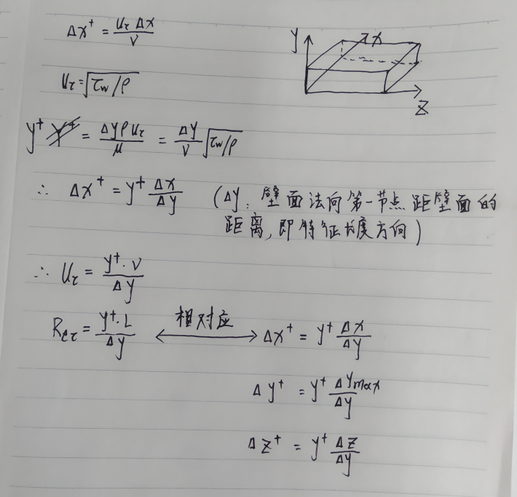 Δx⁺ = uτ Δx / ν
uτ = √(τw/ρ)
y⁺ = Δyρuτ / μ = Δy/ν √(τw/ρ)
∴ Δx⁺ = y⁺ Δx/Δy (Δy: 壁面法向第一节点距壁面的
距离,即特征长度方向)
∴ uτ = y⁺·ν / Δy
Reτ = y⁺·L / Δy ⟷ 相对应 Δx⁺ = y⁺ Δx/Δy
Δy⁺ = y⁺ Δymax/Δy
Δz⁺ = y⁺ Δz/Δy
Y
x
Z